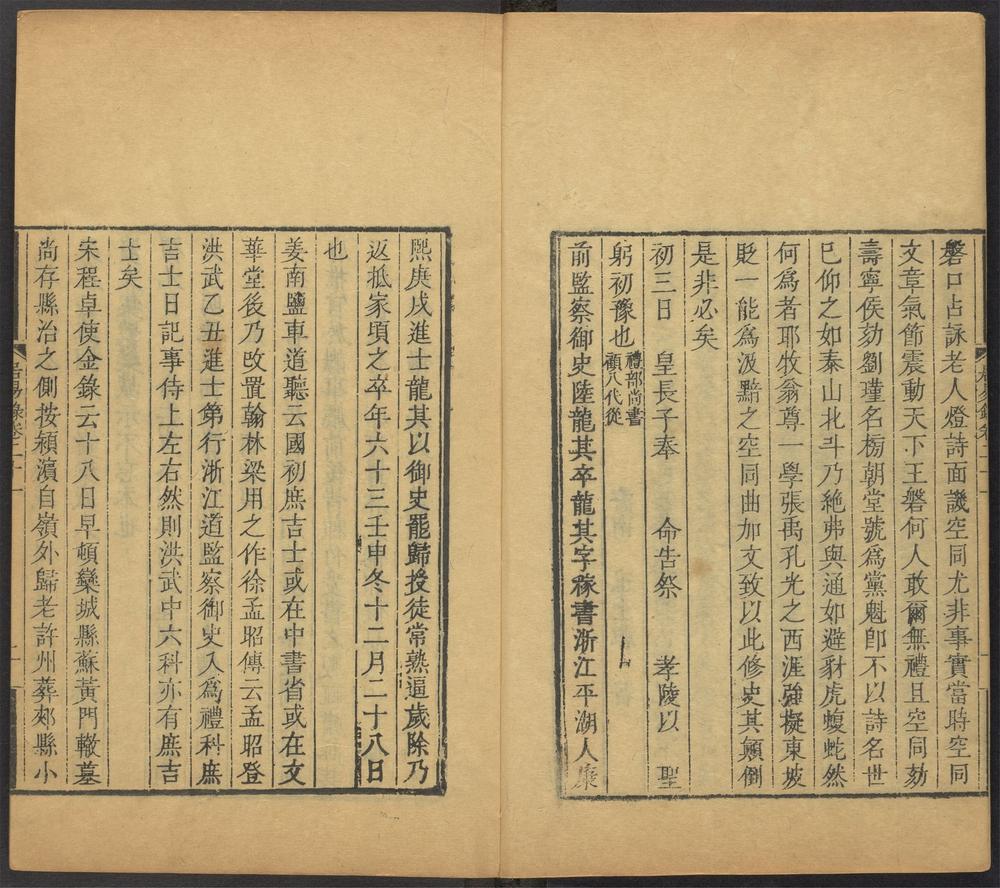 磐口占詠老人燈詩面譏空同尤非事實當時空同
文章氣節震動天下王磐何人敢爾無禮且空同劾
壽寧侯劾劉瑾名榜朝堂號為黨魁卽不以詩名世
巳仰之如泰山北斗乃絶弗與通如避豺虎蝮蛇然
何為者耶牧翁尊一學張禹孔光之西涯強擬東坡
貶一能為汲黯之空同曲加文致以此修史其顚倒
是非必矣
初三日 皇長子奉 命告祭 孝陵以 聖
躬初豫也禮部尚書
顧八代從
前監察御史陸龍其卒龍其字稼書浙江平湖人康
熙庚戌進士龍其以御史罷歸授徒常熟逼歲除乃
返抵家頃之卒年六十三壬申冬十二月二十八日
也
姜南鹽車道聽云國初庶吉士或在中書省或在文
華堂後乃改置翰林梁用之作徐孟昭傳云孟昭登
洪武乙丑進士第行浙江道監察御史入為禮科庶
吉士日記事侍上左右然則洪武中六科亦有庶吉
士矣
宋程卓使金錄云十八日早頓欒城縣蘇黃門轍墓
尚存縣治之側按潁濵自嶺外歸老許州葬郟縣小
居易錄卷二十一